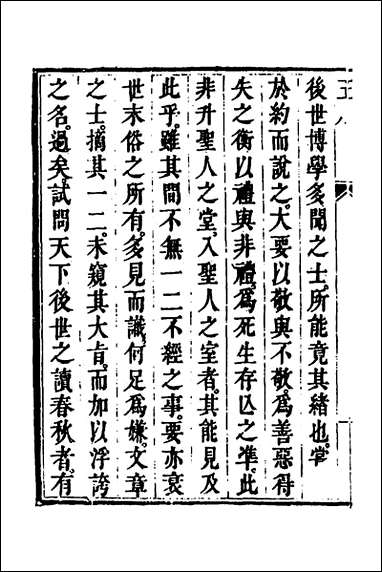 後世博學多聞之士。所能竟其緒也。嘗
於約而說之。大要以敬與不敬。爲善惡得
失之衡。以禮與非禮。爲死生存亾之準。此
非升聖人之堂。入聖人之室者。其能見及
此乎。雖其間不無一二不經之事。要亦衰
世末俗之所有。多見而識。何足爲嫌。文章
之士。摘其一二。未窺其大旨。而加以浮誇
之名。過矣。試問天下後世之讀春秋者。有